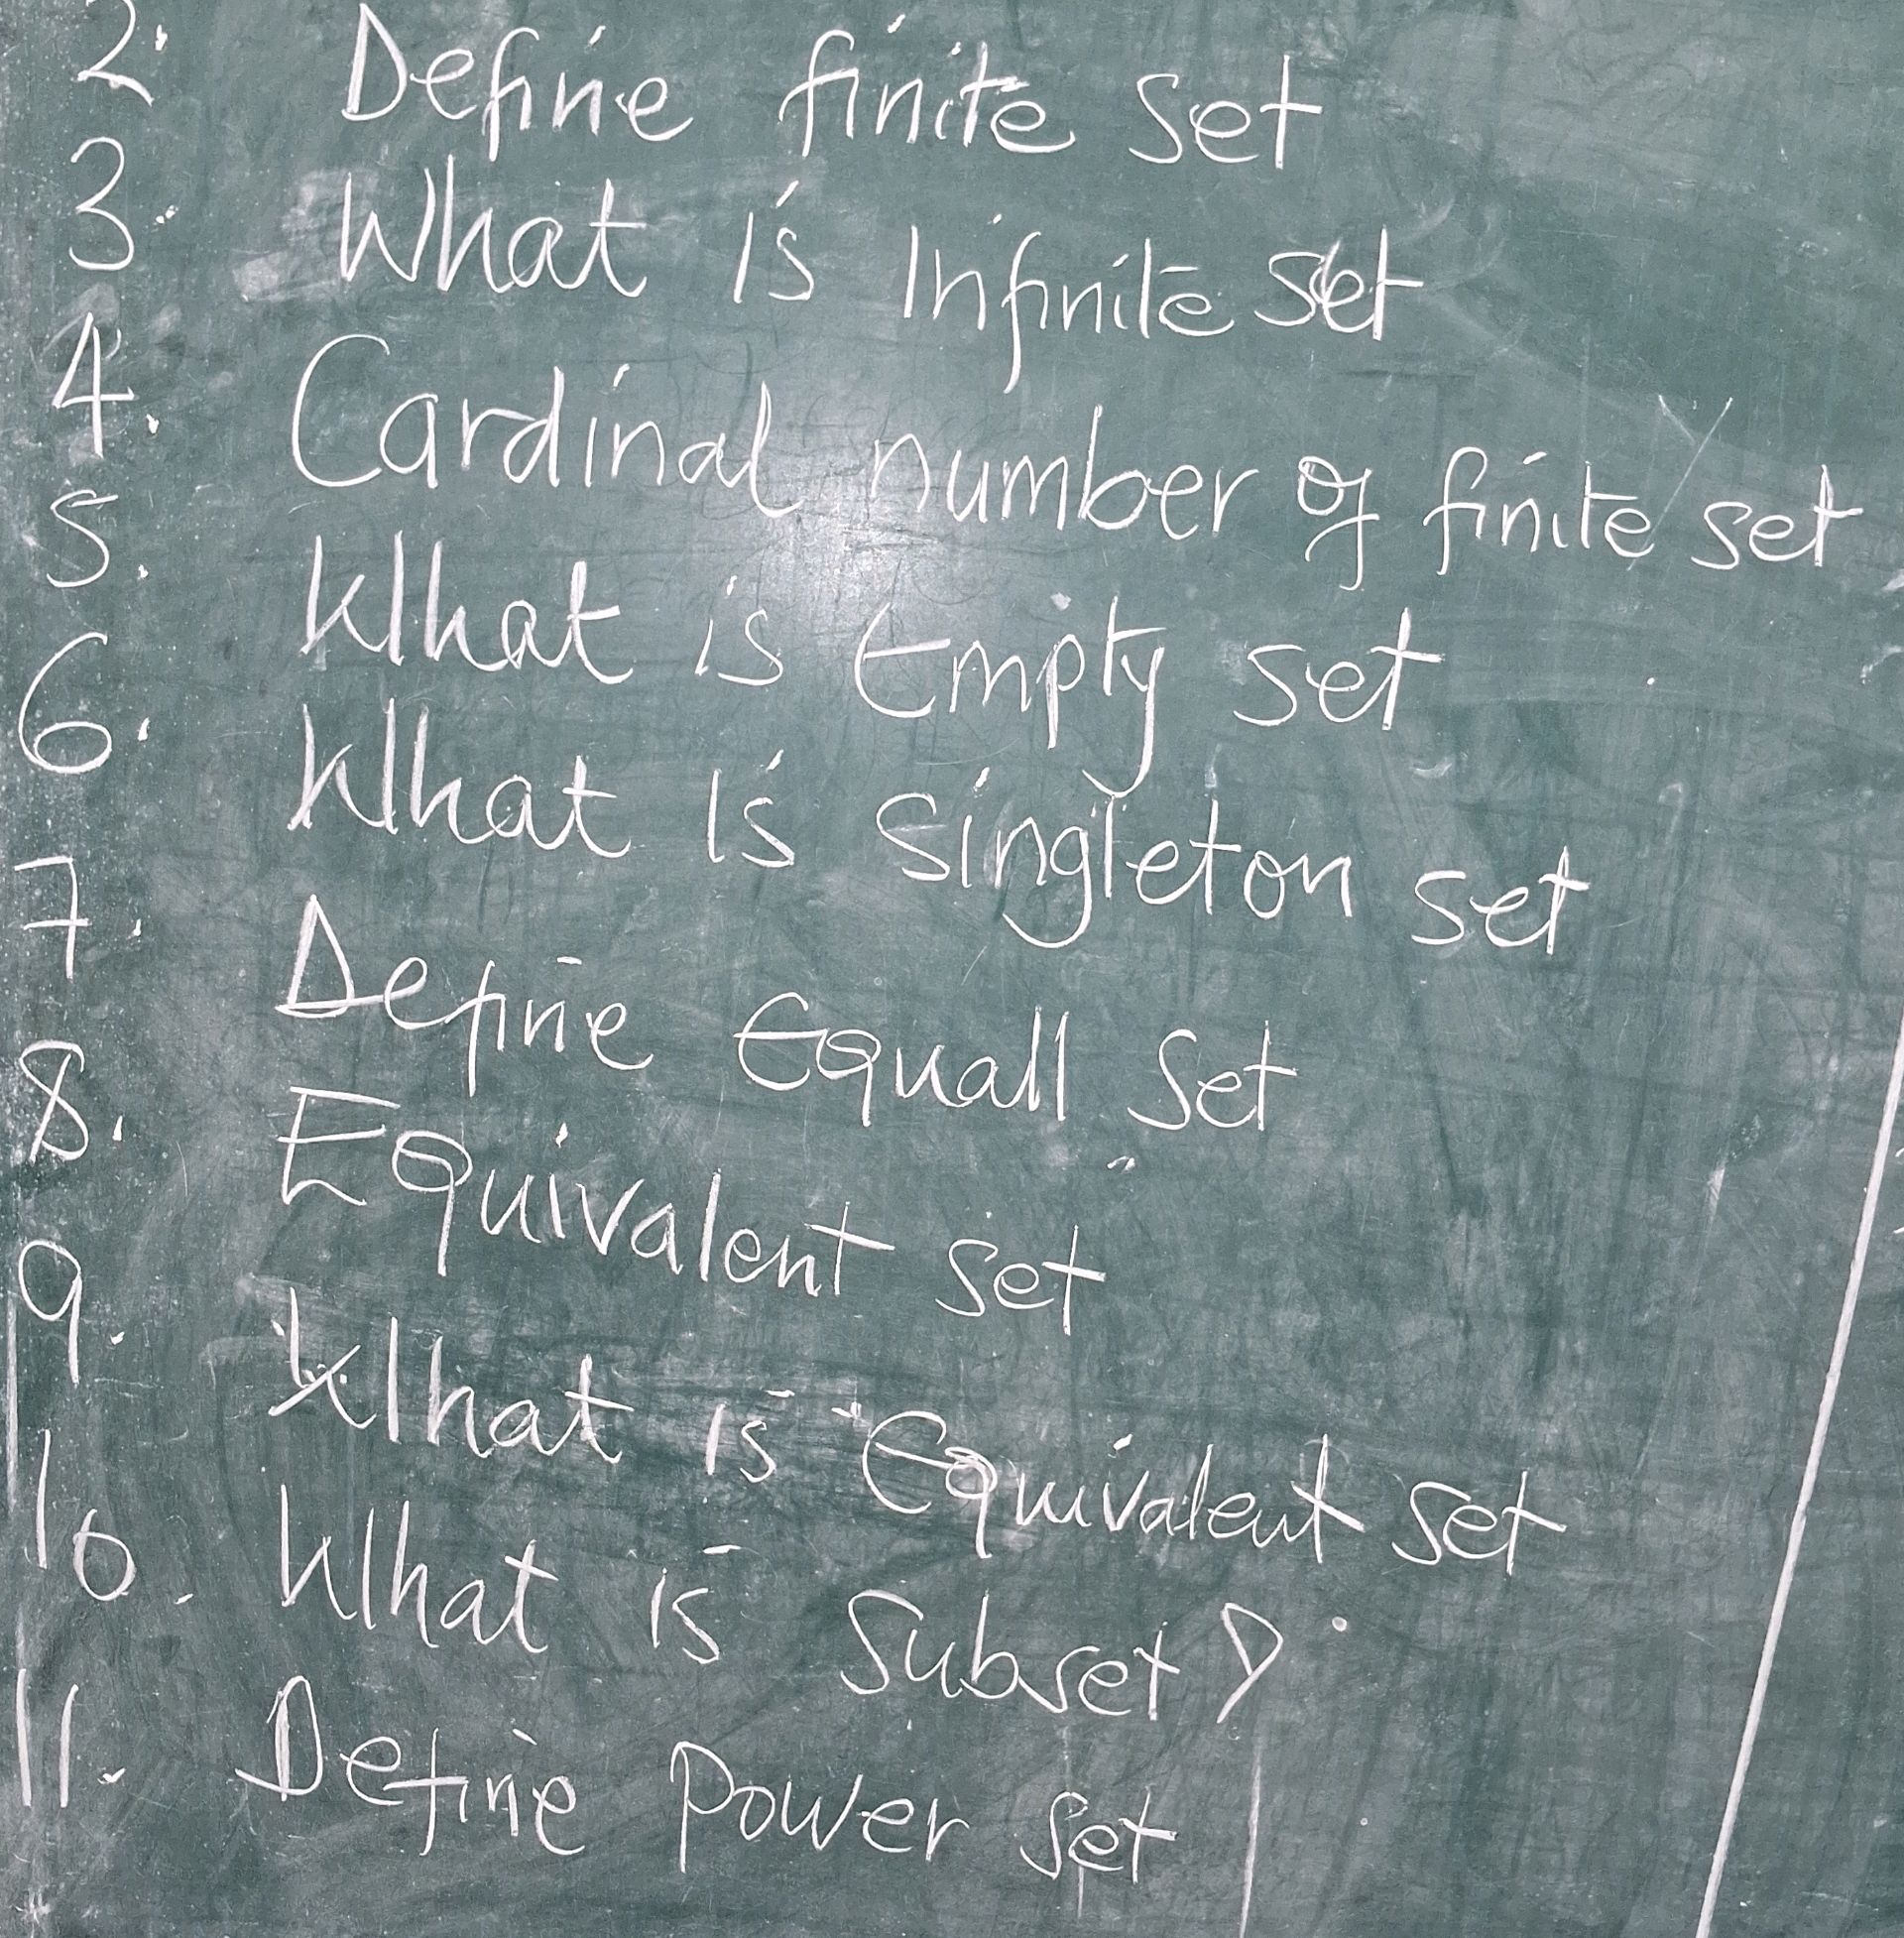 2. Define finite set
3. What is Infinite set
4. Cardinal number of finite set
5. What is Empty set
6. What is Singleton set
7. Define Equall Set
8. Equivalent set
9. What is Equivalent set
10. What is Subset?
11. Define Power set